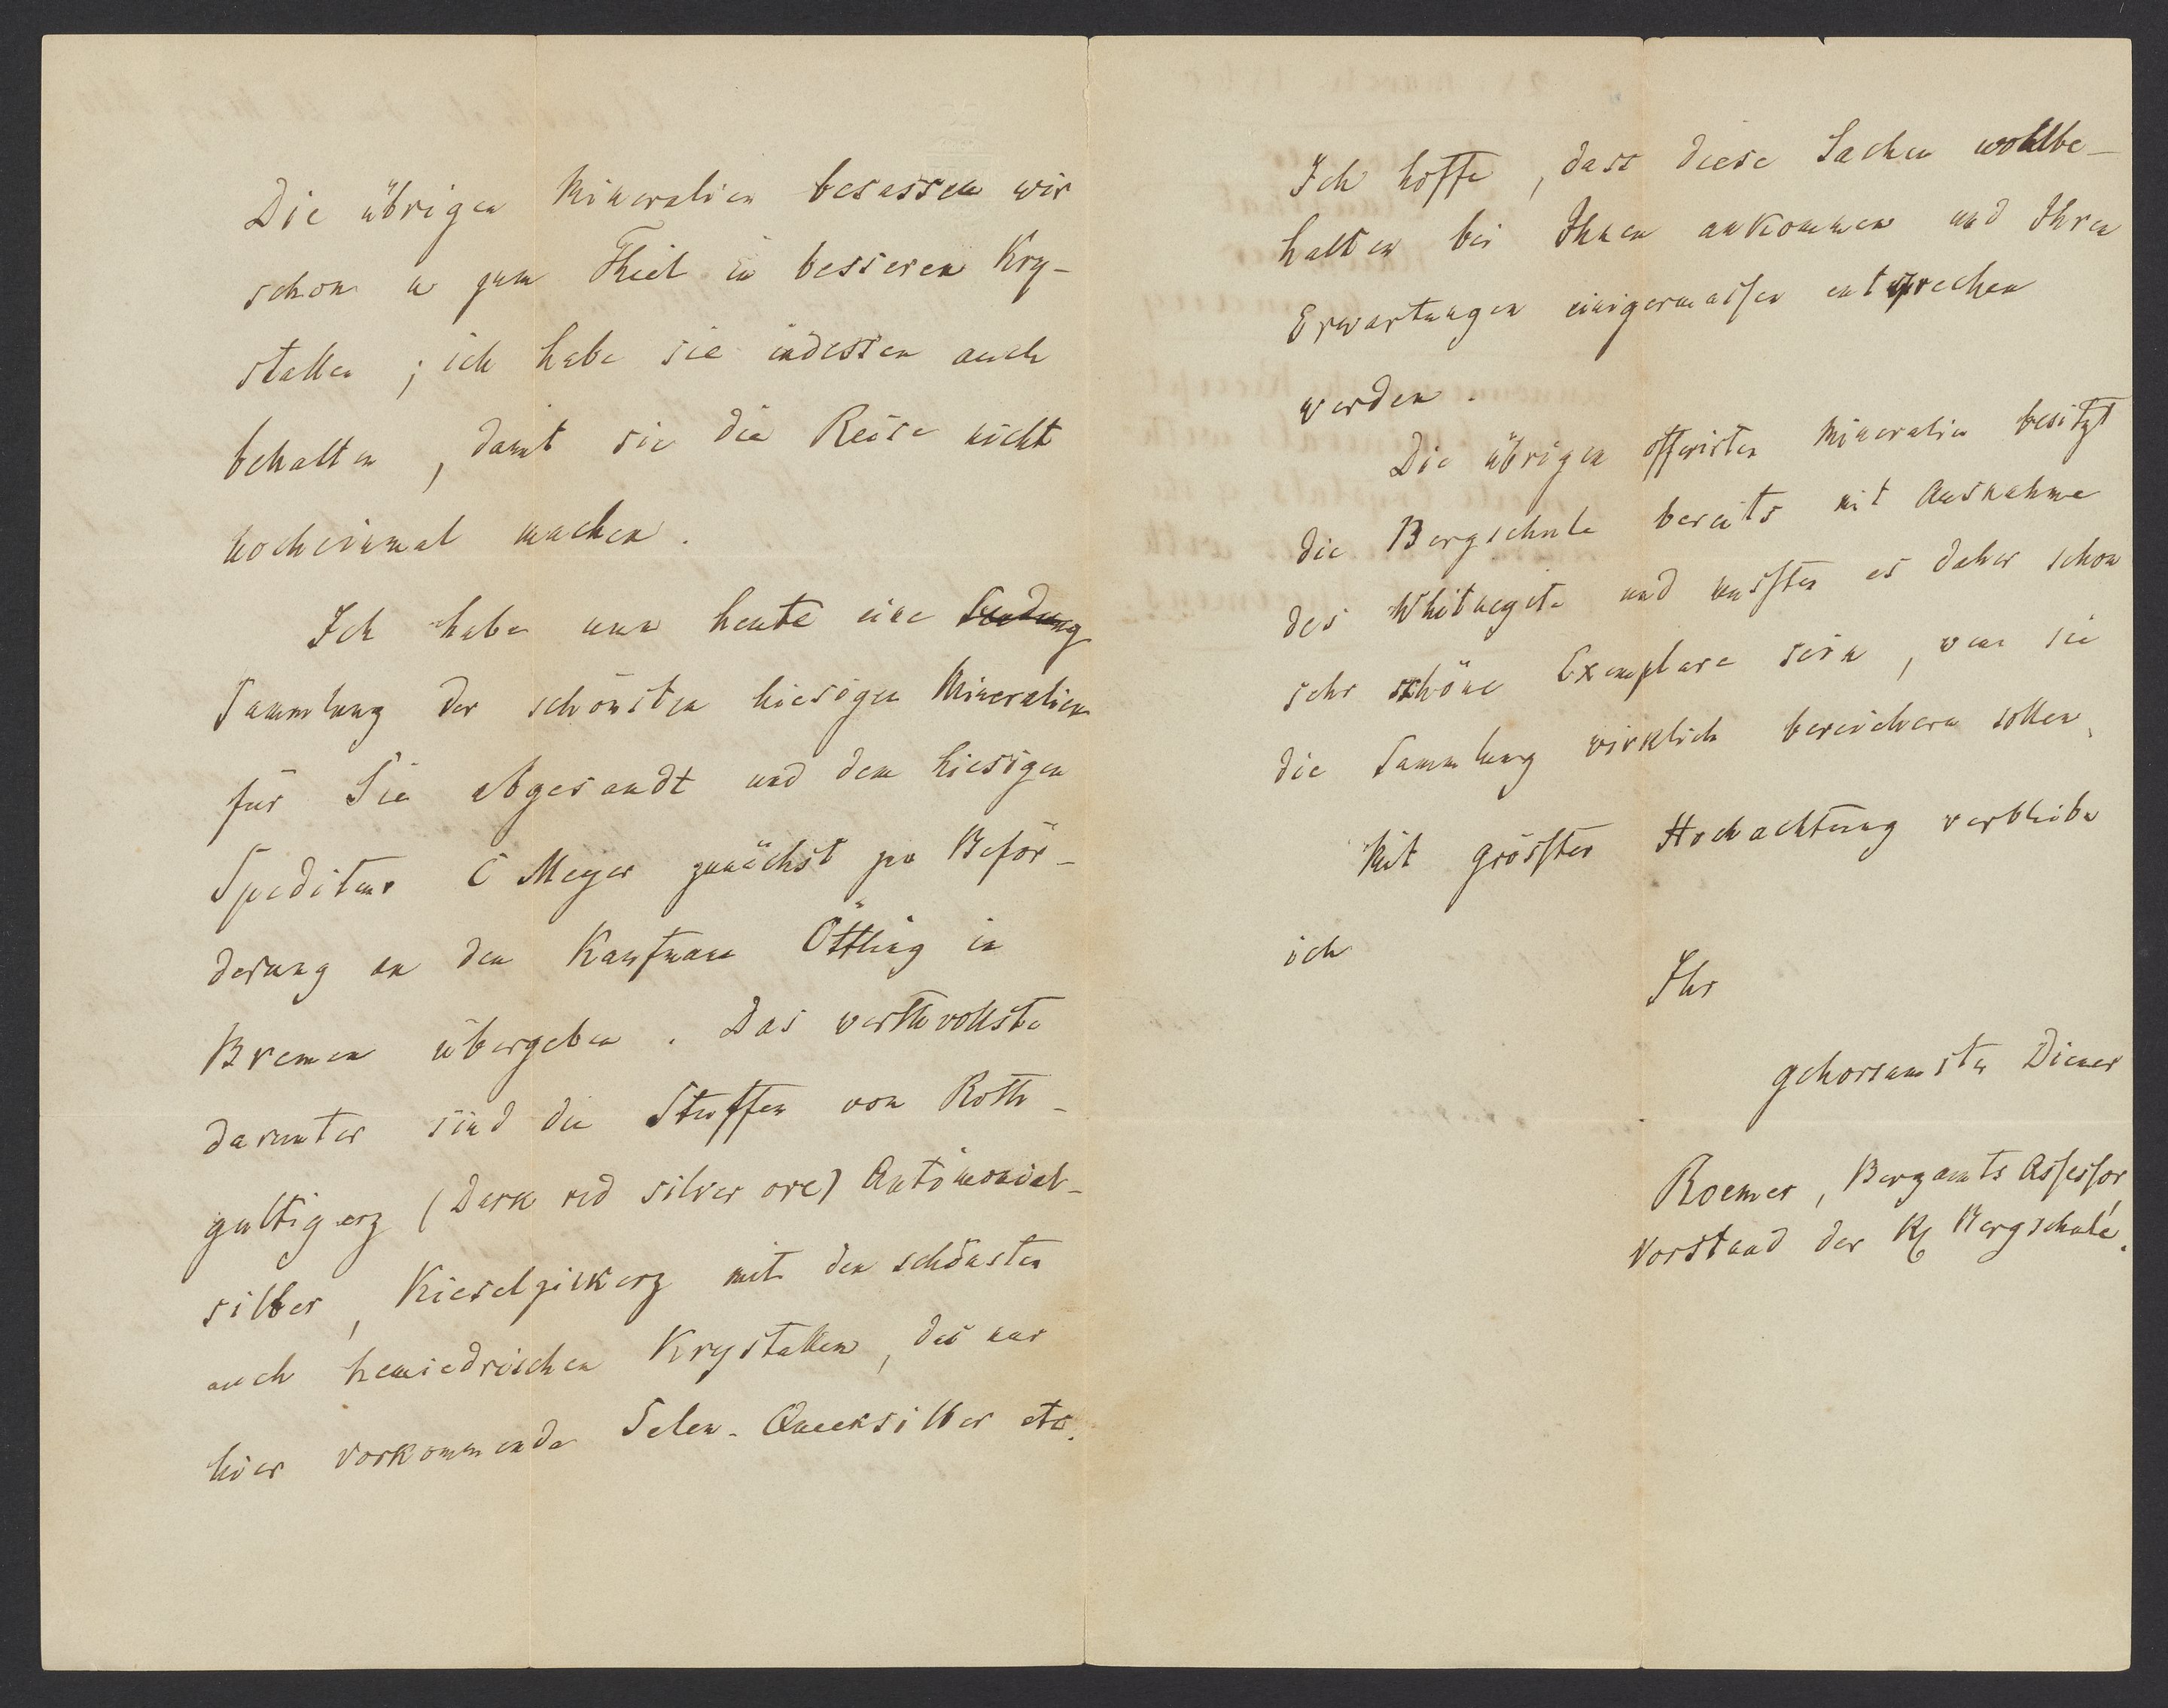 Die übrigen Mineralien besassen wir
schon u zum Theil in besseren Kry-
stallen ; ich habe sie indessen auch
behalten , damit sie die Reise nicht
nocheinmal machen .
Ich habe nun heute eine Sendung
Sammlung der schönsten hiesigen Mineralien
für Sie abgesandt und dem hiesigen
Spediteur C Meyer zunächst zu Beför-
derung an den Kaufmann Öttling in
Bremen übergeben . Das werthvollste
darunter sind die Stuffen von Roth-
gultigerz (Dark red silver ore) Antimonial-
silber , Kieselzinkerz mit den schönsten
auch hemiedrischen Krystallen , das nur
hier vorkommende Selen-Quecksilber etc.
Ich hoffe , dass diese Sachen wohlbe-
halten bei Ihnen ankommen und Ihren
Erwartungen einigermassen entsprechen
werden .
Die übrigen offerirten Mineralien besitzt
die Bergschule bereits mit Ausnahme
des Whitneyits und mussten es daher schon
sehr schöne Exemplare sein , wenn sie
die Sammlung wirklich bereichern sollen .
Mit grösster Hochachtung verbleibe
ich
Ihr
gehorsamster Diener
Roemer , Bergamts Assessor,
Vorstand der Kg Bergschule .